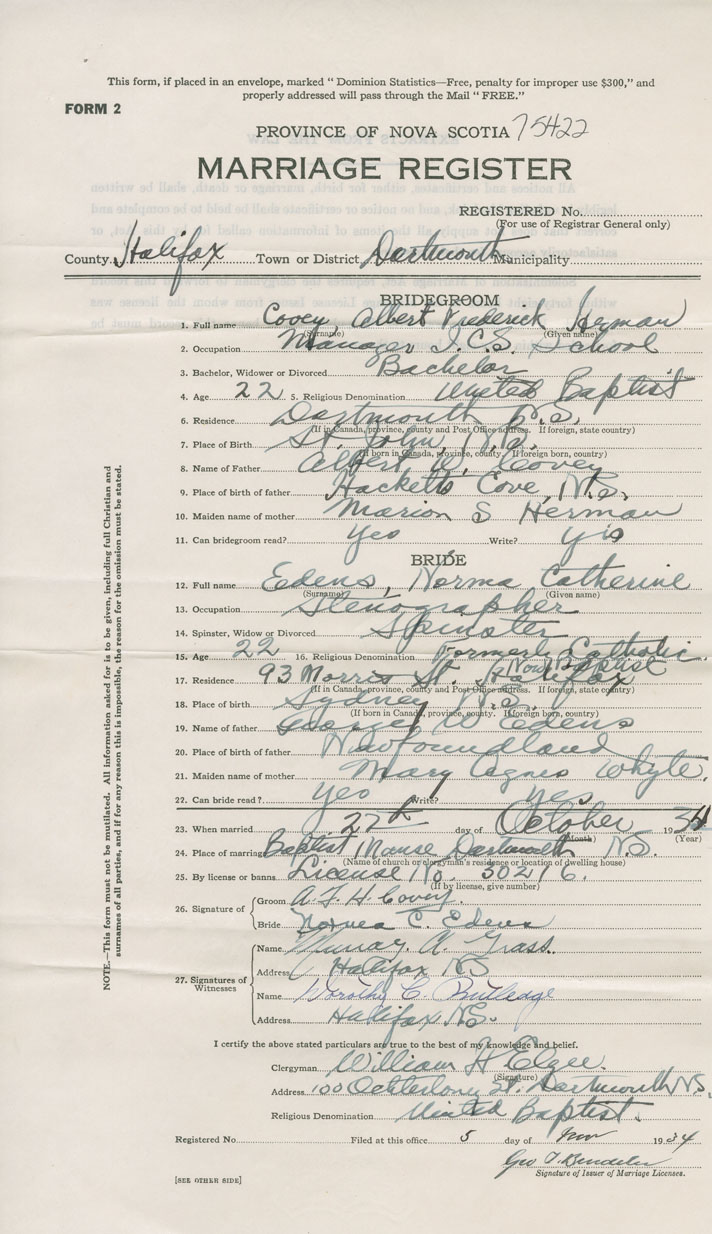 This form, if placed in an envelope, marked " Dominion Statistics—Free, penalty for improper use $300," and
properly addressed will pass through the Mail " FREE."
FORM 2
PROVINCE OF NOVA SCOTIA 75422
MARRIAGE REGISTER
REGISTERED No.
(For use of Registrar General only)
County. Halifax Town or District Dartmouth Municipality
BRIDEGROOM
1. Full name Covey, Albert Frederick Heman
(Surname) (Given name)
2. Occupation Manager I.C.S. School
3. Bachelor, Widower or Divorced Bachelor
4. Age 22 5. Religious Denomination United Baptist
6. Residence Dartmouth N.S.
(If in Canada, province, county and Post Office address. If foreign, state country)
7. Place of Birth St. John, N.B.
(If born in Canada, province, county. If foreign born, country)
8. Name of Father Albert W. Covey
9. Place of birth of father Hacketts Cove, N.S.
10. Maiden name of mother Marion S Herman
11. Can bridegroom read? Yes Write? Yes
BRIDE
12. Full name Edens, Norma Catherine
(Surname) (Given name)
13. Occupation Stenographer
14. Spinster, Widow or Divorced Spinster
15. Age 22 16. Religious Denomination Formerly Catholic.
Now Baptist
17. Residence 93 Morris St. Halifax
(If in Canada, province, county and Post Office address. If foreign, state country)
18. Place of birth Sydney N.S.
(If born in Canada, province, county. If foreign born, country)
19. Name of father George W Edens
20. Place of birth of father Newfoundland
21. Maiden name of mother Mary Agnes Whyte.
22. Can bride read? Yes Write? Yes
23. When married 27th day of October 1934
(Month) (Year)
24. Place of marriage Baptist Manse Dartmouth N.S.
(Name of church or clergyman's residence or location of dwelling house)
25. By license or banns License No. 30216.
(If by license, give number)
26. Signature of Groom A. F. H. Covey.
Bride Norma C. Edens
27. Signatures of Witnesses
Name Murray. A. Grass.
Address Halifax NS
Name Dorothy C. Rutledge
Address Halifax N.S.
I certify the above stated particulars are true to the best of my knowledge and belief.
Clergyman William H Elgee.
(Signature)
Address 100 Ochterloney St. Dartmouth NS.
Religious Denomination United Baptist.
Registered No. Filed at this office 5 day of Nov 1934
Geo
Signature of Issuer of Marriage Licenses.
[SEE OTHER SIDE]
NOTE.—This form must not be mutilated. All information asked for is to be given, including full Christian and
surnames of all parties, and if for any reason this is impossible, the reason for the omission must be stated.